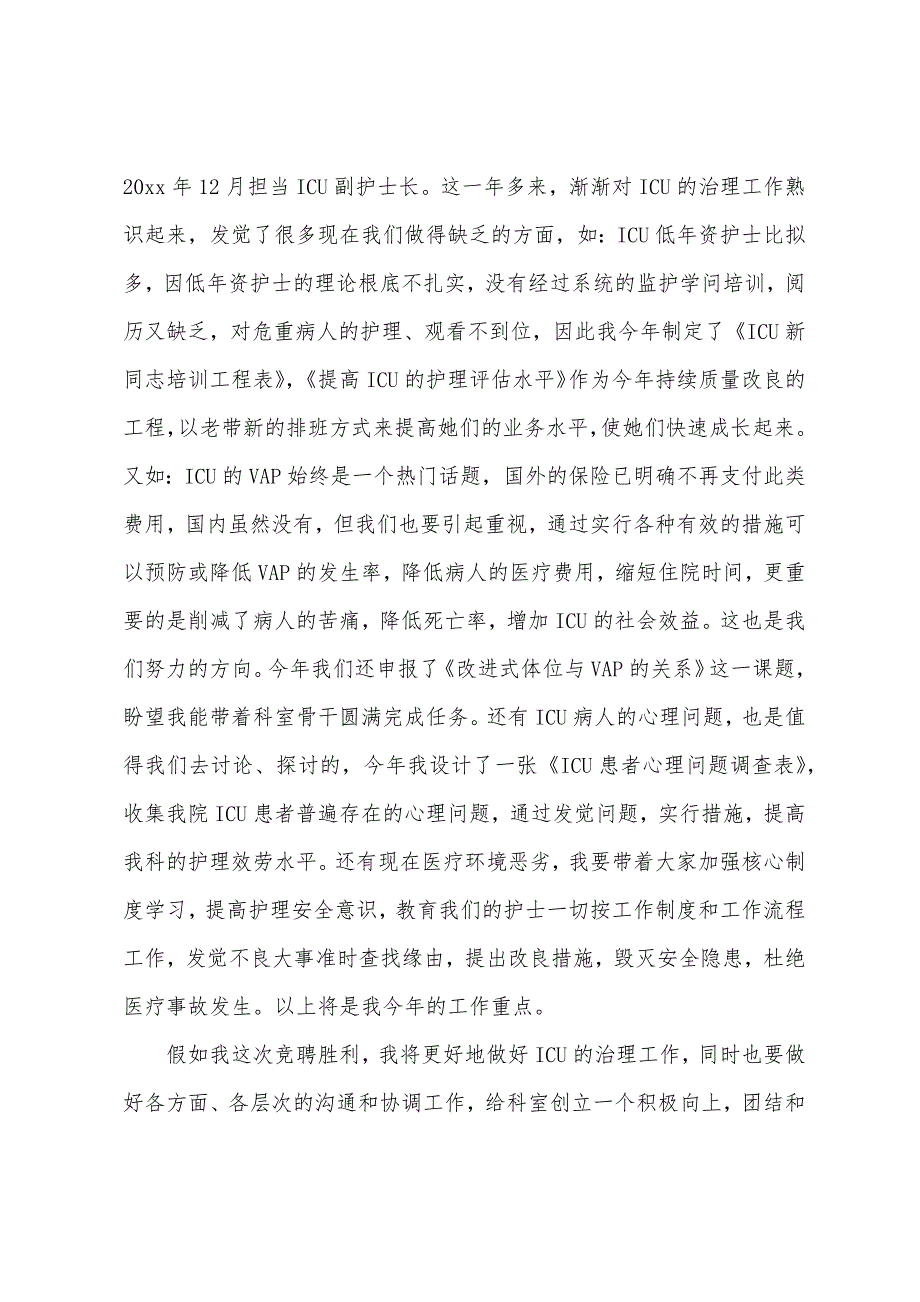 20xx 年 12 月担当 ICU 副护士长。这一年多来，渐渐对 ICU 的治理工作熟
识起来，发觉了很多现在我们做得缺乏的方面，如：ICU 低年资护士比拟
多，因低年资护士的理论根底不扎实，没有经过系统的监护学问培训，阅
历又缺乏，对危重病人的护理、观看不到位，因此我今年制定了《ICU 新
同志培训工程表》，《提高 ICU 的护理评估水平》作为今年持续质量改良的
工程，以老带新的排班方式来提高她们的业务水平，使她们快速成长起来。
又如：ICU 的 VAP 始终是一个热门话题，国外的保险已明确不再支付此类
费用，国内虽然没有，但我们也要引起重视，通过实行各种有效的措施可
以预防或降低 VAP 的发生率，降低病人的医疗费用，缩短住院时间，更重
要的是削减了病人的苦痛，降低死亡率，增加 ICU 的社会效益。这也是我
们努力的方向。今年我们还申报了《改进式体位与 VAP 的关系》这一课题，
盼望我能带着科室骨干圆满完成任务。还有 ICU 病人的心理问题，也是值
得我们去讨论、探讨的，今年我设计了一张《ICU 患者心理问题调查表》，
收集我院 ICU 患者普遍存在的心理问题，通过发觉问题，实行措施，提高
我科的护理效劳水平。还有现在医疗环境恶劣，我要带着大家加强核心制
度学习，提高护理安全意识，教育我们的护士一切按工作制度和工作流程
工作，发觉不良大事准时查找缘由，提出改良措施，毁灭安全隐患，杜绝
医疗事故发生。以上将是我今年的工作重点。
假如我这次竞聘胜利，我将更好地做好 ICU 的治理工作，同时也要做
好各方面、各层次的沟通和协调工作，给科室创立一个积极向上，团结和